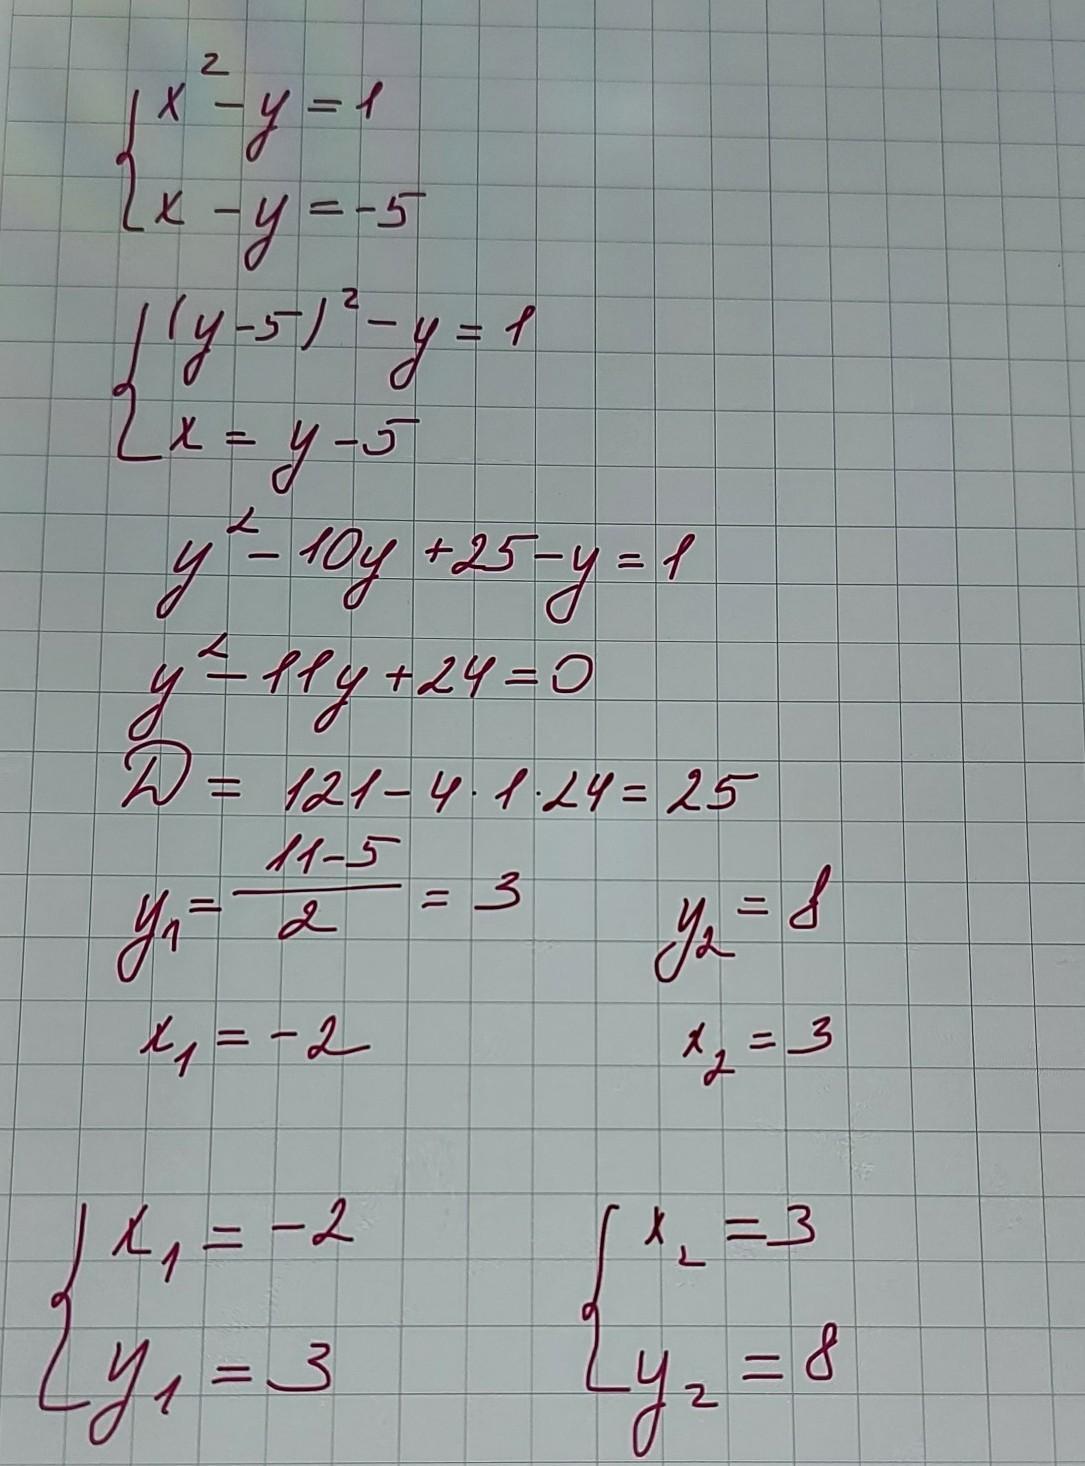 { x² - y = 1
x - y = -5
{ (y-5)² - y = 1
x = y - 5
y² - 10y + 25 - y = 1
y² - 11y + 24 = 0
D = 121 - 4 · 1 · 24 = 25
y₁ = (11-5)/2 = 3 y₂ = 8
x₁ = -2 x₂ = 3
{ x₁ = -2 { x₂ = 3
y₁ = 3 y₂ = 8